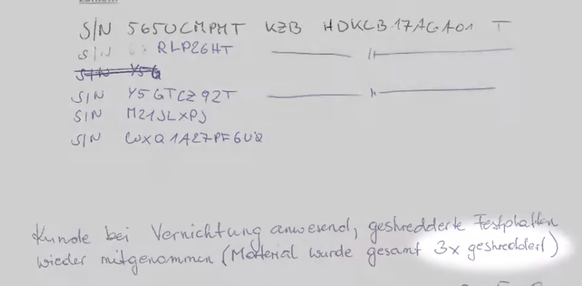 S/N 565UCMPMT KZB HDKCB17AGA01 T
S/N RLP26HT
S/N Y5G
S/N Y5GTCZ92T
S/N M21JLXPJ
S/N WXQ1A27PF6UQ
Kunde bei Vernichtung anwesend, geshredderte Festplatten
wieder mitgenommen (Material wurde gesamt 3x geshreddert)